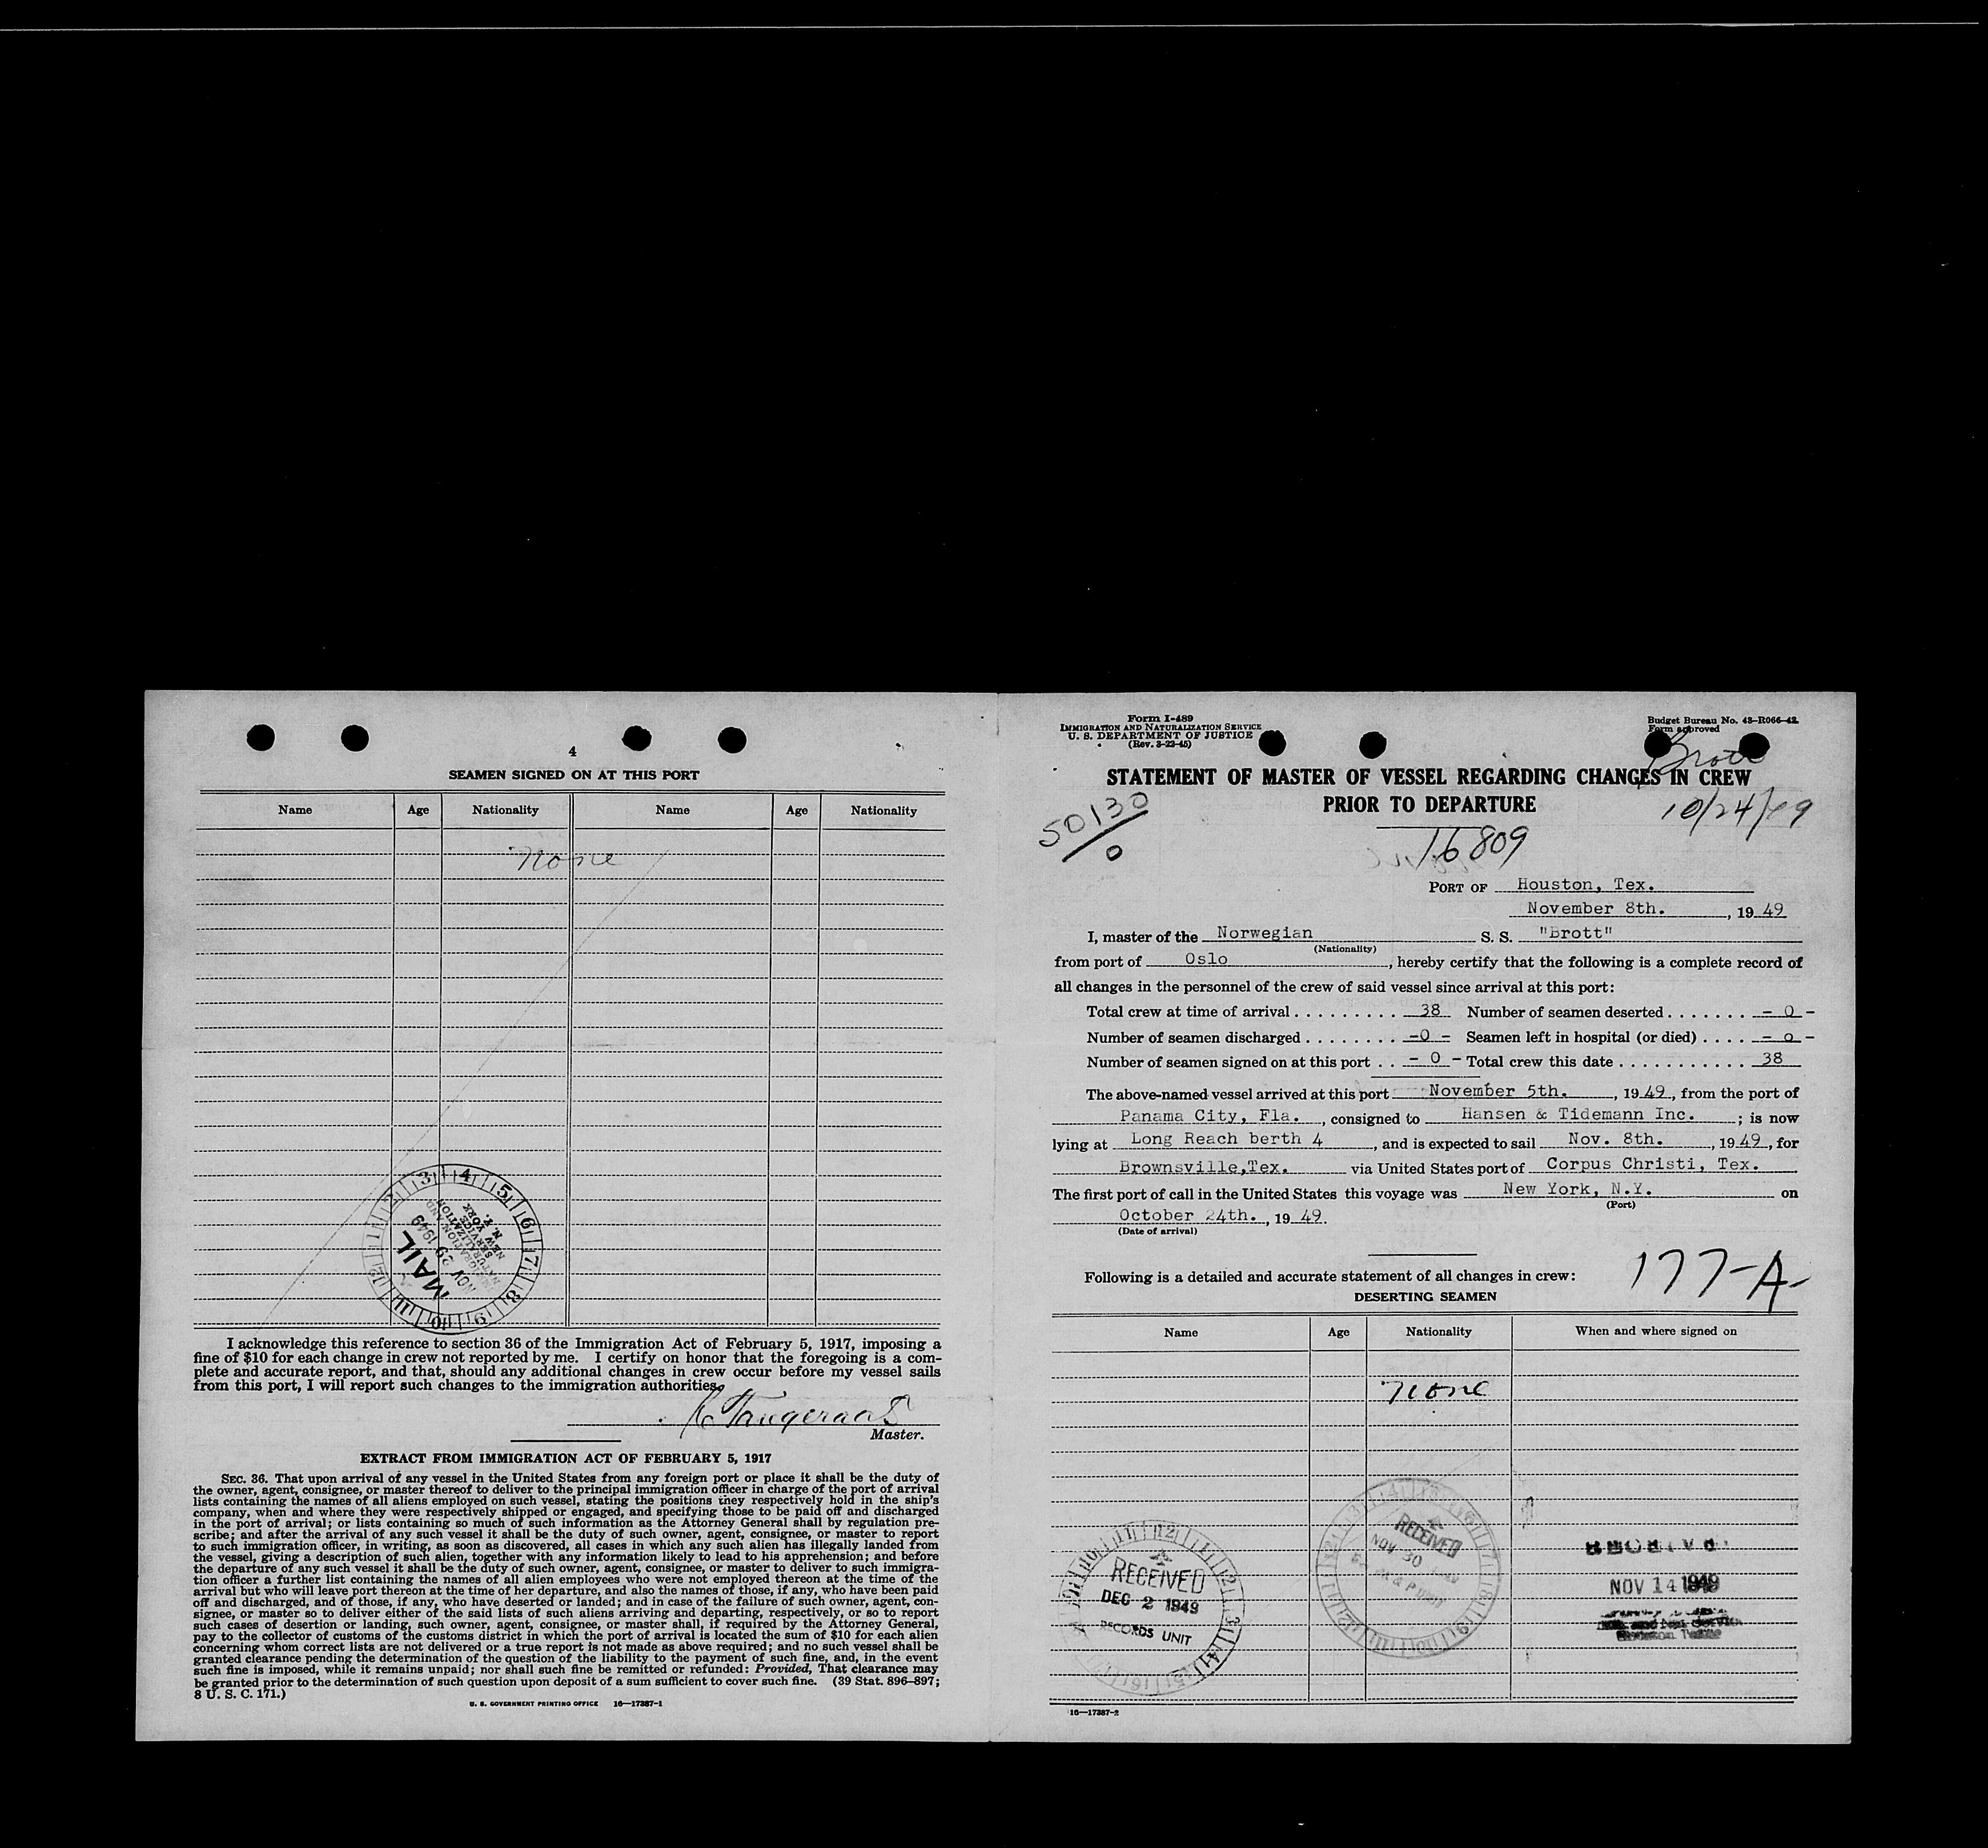 4
SEAMEN SIGNED ON AT THIS PORT
Name Age Nationality Name Age Nationality
None
MAIL
NOV 29 1949
IMMIGRATION AND
NATURALIZATION
SERVICE
NEW YORK
N. Y.
I acknowledge this reference to section 36 of the Immigration Act of February 5, 1917, imposing a
fine of $10 for each change in crew not reported by me. I certify on honor that the foregoing is a com-
plete and accurate report, and that, should any additional changes in crew occur before my vessel sails
from this port, I will report such changes to the immigration authorities.
Master.
EXTRACT FROM IMMIGRATION ACT OF FEBRUARY 5, 1917
SEC. 36. That upon arrival of any vessel in the United States from any foreign port or place it shall be the duty of
the owner, agent, consignee, or master thereof to deliver to the principal immigration officer in charge of the port of arrival
lists containing the names of all aliens employed on such vessel, stating the positions they respectively hold in the ship's
company, when and where they were respectively shipped or engaged, and specifying those to be paid off and discharged
in the port of arrival; or lists containing so much of such information as the Attorney General shall by regulation pre-
scribe; and after the arrival of any such vessel it shall be the duty of such owner, agent, consignee, or master to report
to such immigration officer, in writing, as soon as discovered, all cases in which any such alien has illegally landed from
the vessel, giving a description of such alien, together with any information likely to lead to his apprehension; and before
the departure of any such vessel it shall be the duty of such owner, agent, consignee, or master to deliver to such immigra-
tion officer a further list containing the names of all alien employees who were not employed thereon at the time of the
arrival but who will leave port thereon at the time of her departure, and also the names of those, if any, who have been paid
off and discharged, and of those, if any, who have deserted or landed; and in case of the failure of such owner, agent, con-
signee, or master so to deliver either of the said lists of such aliens arriving and departing, respectively, or so to report
such cases of desertion or landing, such owner, agent, consignee, or master shall, if required by the Attorney General,
pay to the collector of customs of the customs district in which the port of arrival is located the sum of $10 for each alien
concerning whom correct lists are not delivered or a true report is not made as above required; and no such vessel shall be
granted clearance pending the determination of the question of the liability to the payment of such fine, and, in the event
such fine is imposed, while it remains unpaid; nor shall such fine be remitted or refunded: Provided, That clearance may
be granted prior to the determination of such question upon deposit of a sum sufficient to cover such fine. (39 Stat. 896-897;
8 U. S. C. 171.)
U. S. GOVERNMENT PRINTING OFFICE 16—17387-1
Form I-489
IMMIGRATION AND NATURALIZATION SERVICE
U. S. DEPARTMENT OF JUSTICE
(Rev. 3-22-45)
Budget Bureau No. 43-R066-42.
Form approved
Brott
STATEMENT OF MASTER OF VESSEL REGARDING CHANGES IN CREW
PRIOR TO DEPARTURE
10/24/49
50130
0
16809
PORT OF Houston, Tex.
November 8th., 19 49
I, master of the Norwegian S. S. "Brott"
(Nationality)
from port of Oslo, hereby certify that the following is a complete record of
all changes in the personnel of the crew of said vessel since arrival at this port:
Total crew at time of arrival . . . . . . . . . 38 Number of seamen deserted . . . . . . . - 0 -
Number of seamen discharged . . . . . . . . -0 - Seamen left in hospital (or died) . . . . - 0 -
Number of seamen signed on at this port . . - 0 - Total crew this date . . . . . . . . . . . 38
The above-named vessel arrived at this port November 5th., 19 49, from the port of
Panama City, Fla., consigned to Hansen & Tidemann Inc.; is now
lying at Long Reach berth 4, and is expected to sail Nov. 8th., 19 49, for
Brownsville,Tex. via United States port of Corpus Christi, Tex.
The first port of call in the United States this voyage was New York, N.Y. on
(Port)
October 24th., 19 49.
(Date of arrival)
177-A-
Following is a detailed and accurate statement of all changes in crew:
DESERTING SEAMEN
Name Age Nationality When and where signed on
None
RECEIVED
DEC 2 1949
RECORDS UNIT
RECEIVED
NOV 30 1949
RECEIVED
NOV 14 1949
16—17387-2